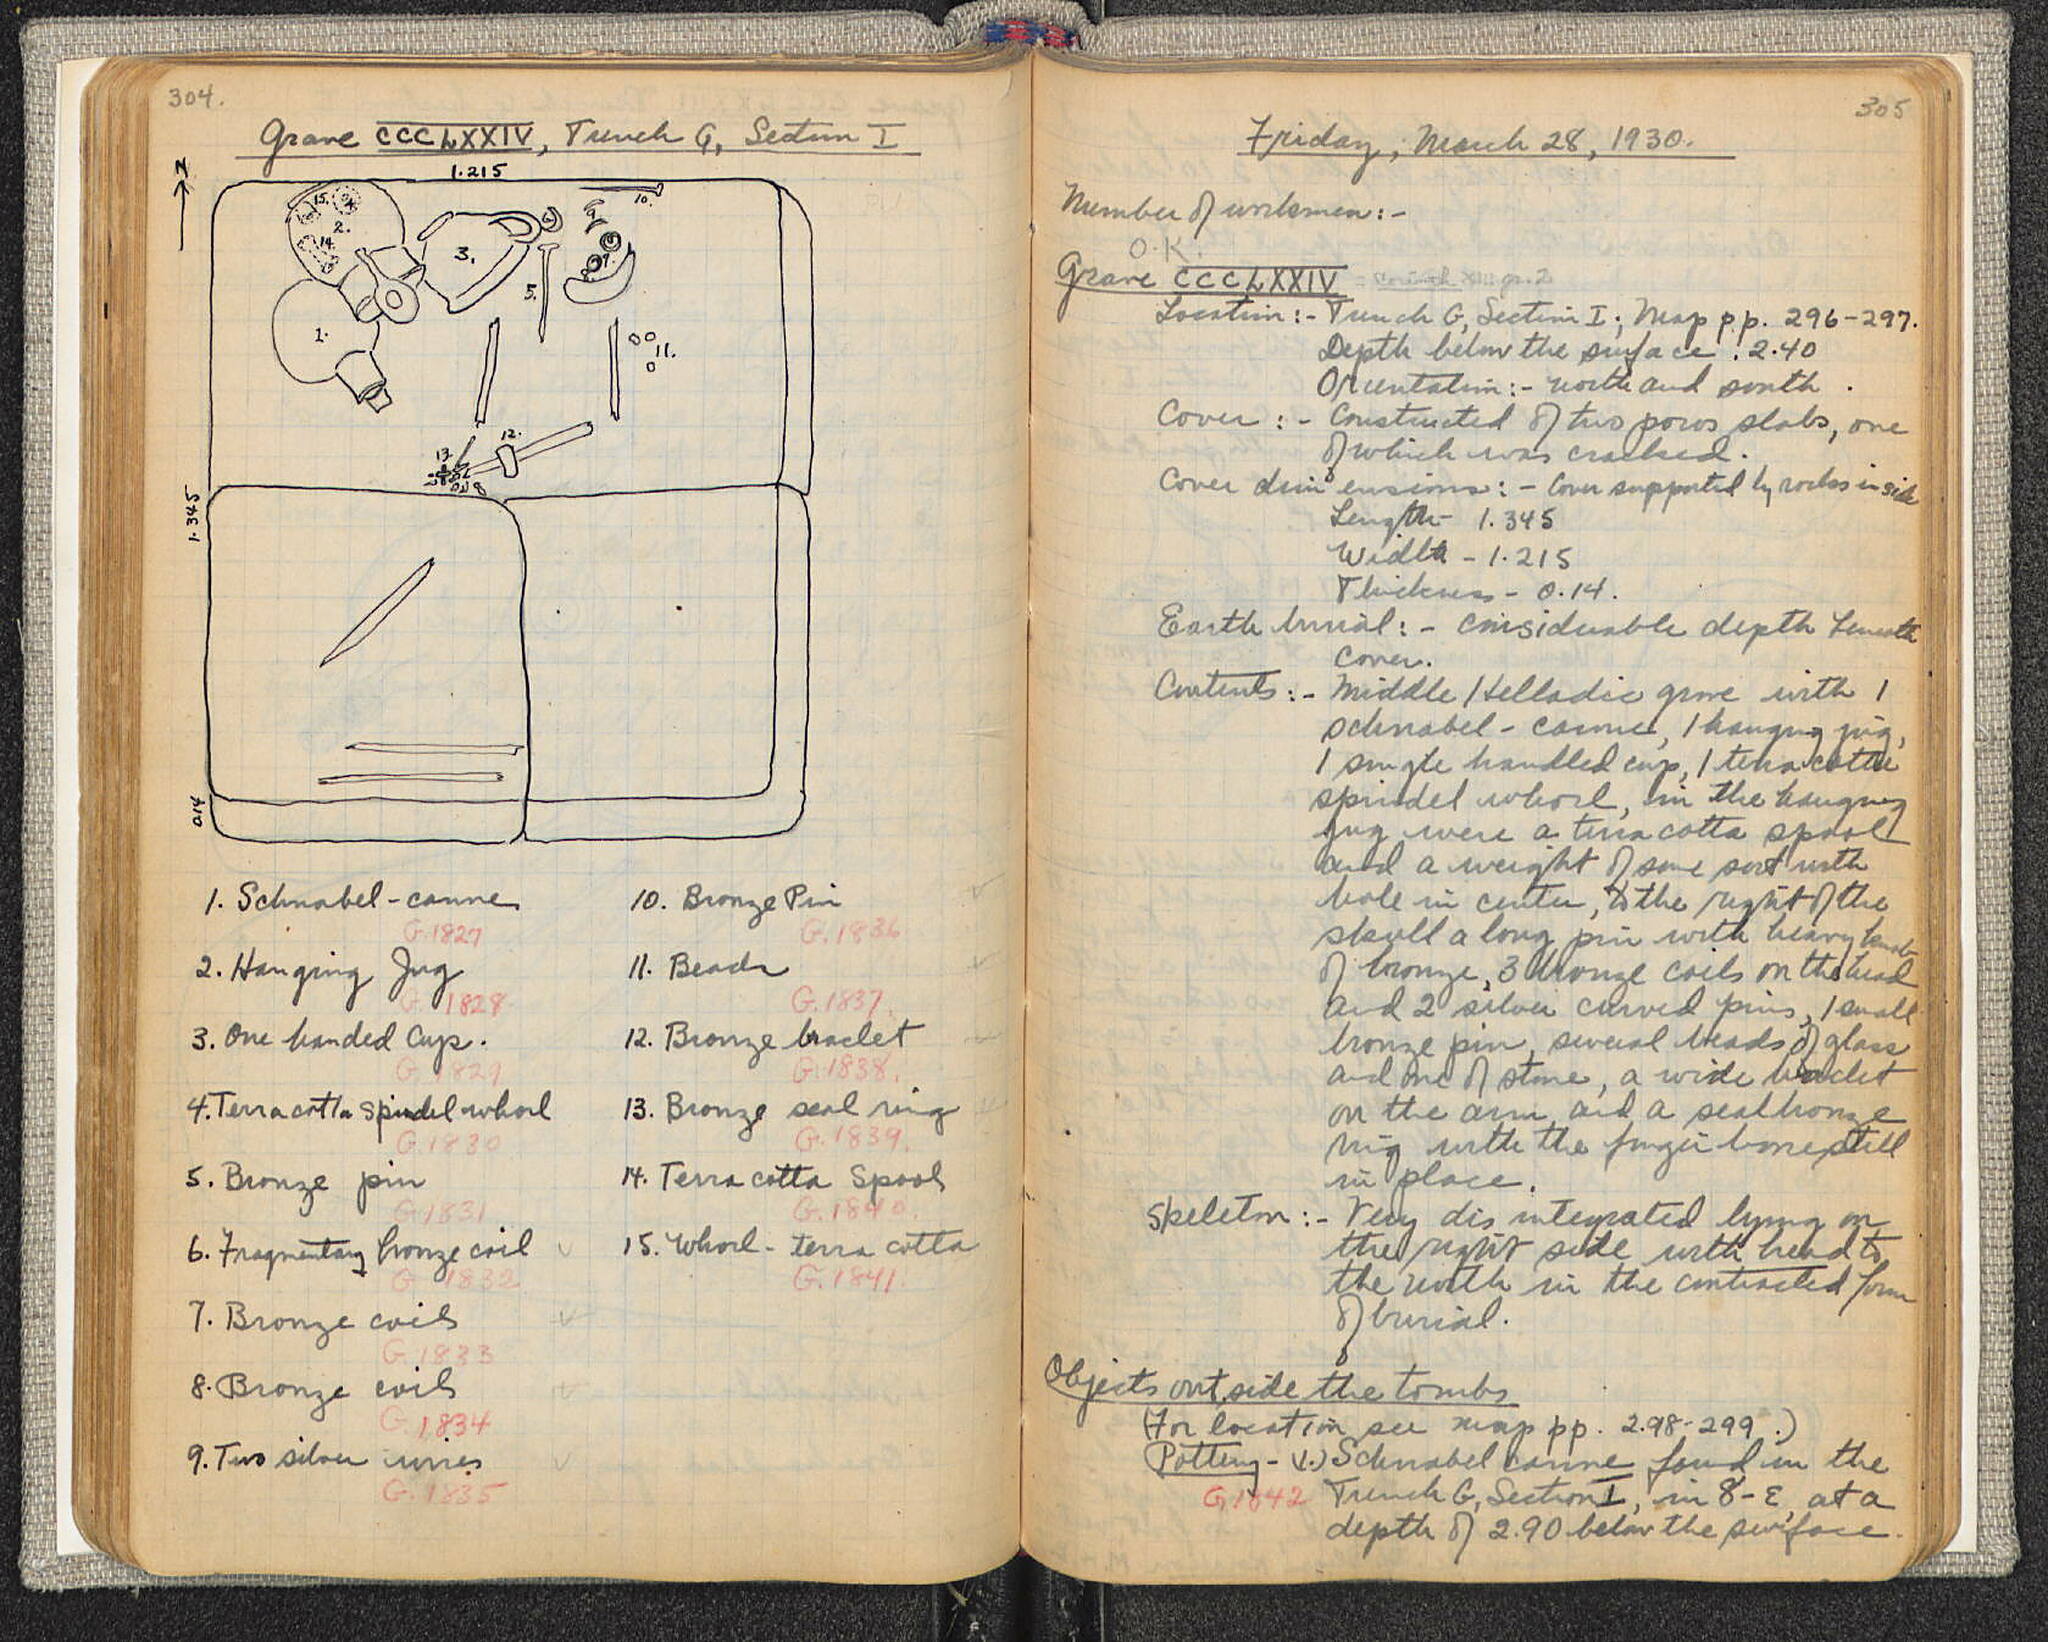 304.
Grave CCCLXXIV, Trench G, Section I
N
1.215
15.
2.
14.
3.
6
9
10.
5.
7.
1.
11.
12.
13.
8
1.345
0.14
1. Schnabel-canne
G.1827
2. Hanging Jug
G. 1828
3. One handed Cup.
G. 1829
4. Terra cotta spindel whorl
G.1830
5. Bronze pin
G.1831
6. Fragmentary bronze coil
G. 1832
7. Bronze coils
G.1833
8. Bronze coils
G.1834
9. Two silver wires
G.1835
10. Bronze Pin
G.1836
11. Beads
G.1837.
12. Bronze braclet
G.1838.
13. Bronze seal ring
G.1839.
14. Terra cotta Spool
G.1840.
15. Whorl - terra cotta
G.1841.
305
Friday, March 28, 1930.
Number of workmen:-
O.K.
Grave CCCLXXIV = Corinth XIII gr. 2
Location:- Trench G, Section I; Map pp. 296-297.
Depth below the surface. 2.40
Orientation:- north and south.
Cover:- Constructed of two poros slabs, one
of which was cracked.
Cover dimensions:- Cover supported by rocks in side
Length- 1.345
Width - 1.215
Thickness - 0.14.
Earth burial:- considerable depth beneath
cover.
Contents:- Middle Helladic grave with 1
schnabel-canne, 1 hanging jug,
1 single handled cup, 1 terra cotta
spindel whorl, in the hanging
jug were a terra cotta spool
and a weight of some sort with
hole in center, to the right of the
skull a long pin with heavy knob
of bronze, 3 bronze coils on the head
and 2 silver curved pins, 1 small
bronze pin, several beads of glass
and one of stone, a wide braclet
on the arm and a seal bronze
ring with the finger bone still
in place.
Skeleton:- Very disintegrated lying on
the right side with head to
the north in the contracted form
of burial.
Objects outside the tombs
(For location see map pp. 298-299.)
Pottery - 1.) Schnabel canne found in the
G.1842 Trench G, Section I, in 8-E at a
depth of 2.90 below the surface.